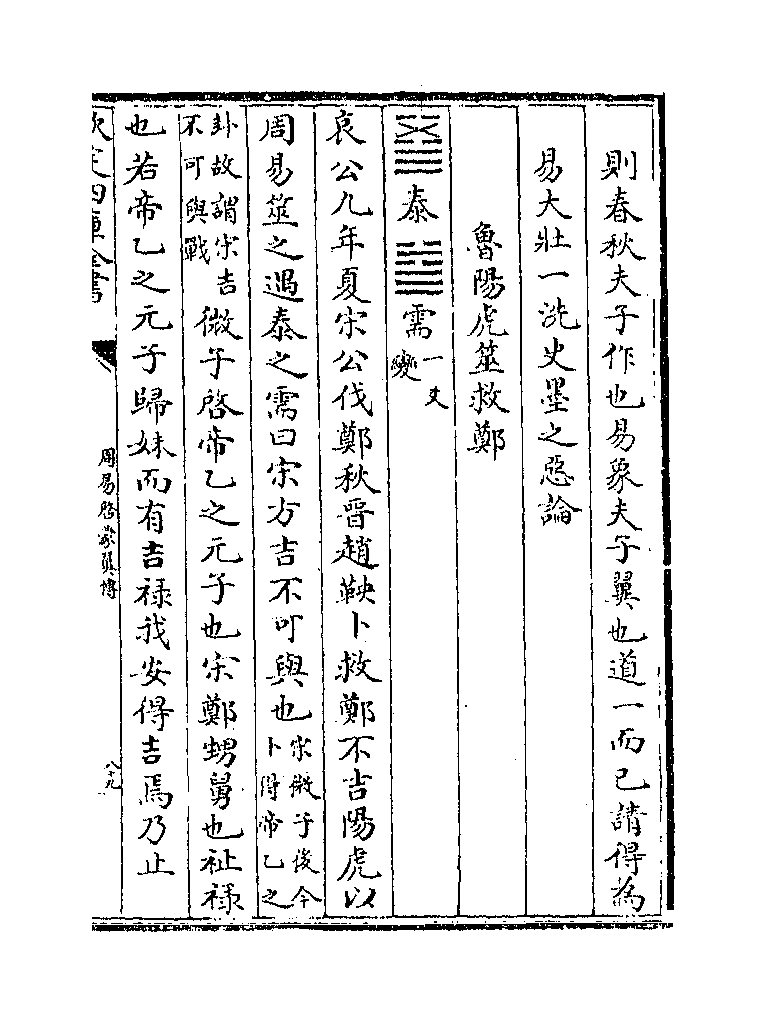 則春秋夫子作也易象夫子翼也道一而已請得為
易大壯一洗史墨之惡論
魯陽虎筮救鄭
泰 需 一爻變
哀公九年夏宋公伐鄭秋晉趙鞅卜救鄭不吉陽虎以
周易筮之遇泰之需曰宋方吉不可與也宋微子後今卜得帝乙之
卦故謂宋吉不可與戰微子啓帝乙之元子也宋鄭甥舅也祉祿
也若帝乙之元子歸妹而有吉祿我安得吉焉乃止
欽定四庫全書
周易啓蒙翼傳
八十九